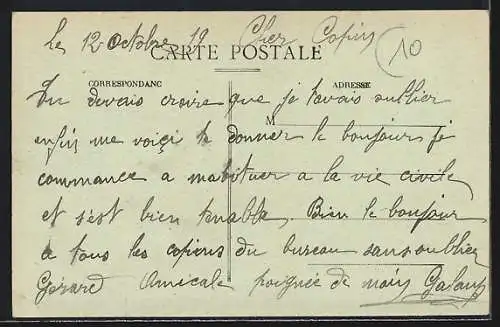 le 12 Octobre 19 Cher Copin
10
CARTE POSTALE
CORRESPONDANC ADRESSE
Tu devais croire que je t'avais oublier
M
enfin me voiçi te donner le bonjours je
commance a m'abituer a la vie civile
et s'est bien tenable. Bien le bonjour
a tous les copiens du bureau sans oublier
Gérard Amicale poignée de main Galaup